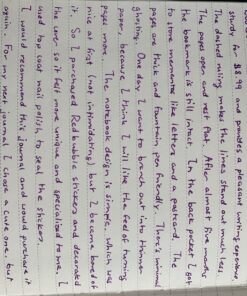 study for $8.99 and provides a pleasant writing experience.
The dashed ruling makes the lines stand out much less.
The pages open and rest flat. After almost five months
the bookmark is still intact. In the back pocket I got
to store mementos like letters and a postcard. The
pages are thick and fountain pen friendly. There's minimal
ghosting. One day I want to branch out into thinner
paper, because I think I will like the feel of turning
pages more. The notebook design is simple, which was
nice at first (not intimidating), but I became bored of
it. So I purchased Redbubble stickers and decorated
the cover so it felt more unique and specialized to me. I
used top coat nail polish to seal the stickers.
I would recommend this journal and would purchase it
again. For my next journal I chose a cute one, but